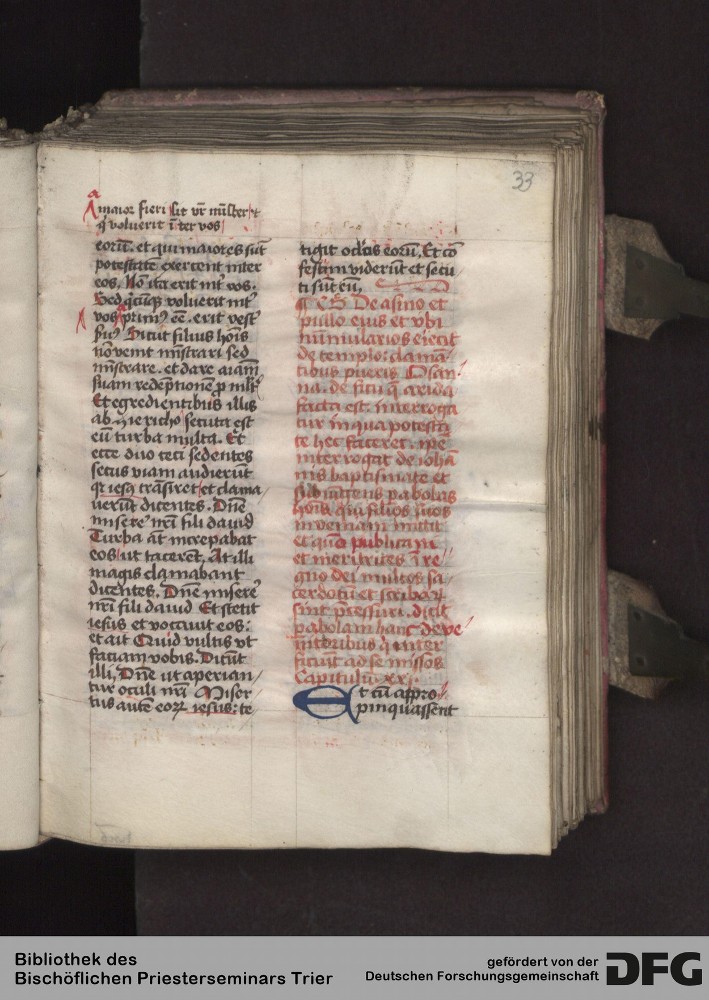 33
maior fieri sit vr̄ mīster et
q̄ voluerit īter vos
eorū. et qui maiores sūt
potestatē exercent inter
eos. Nō ita erit int̄ vos.
Sed q̇cūqꝫ voluerit int̄
vos prim9 eē. erit vest̄
Sicut filius hoīs
nō venit mīstrari sed
mīstrare. et dare aīam
suam redēptionē ꝓ mlt̄
Et egredientibus illis
ab Hiericho secuta est
eū turba multa. Et
ecce duo ceci sedentes
secus viam audierūt
qꝛ iesꝯ trāsiret et clama
uerūt dicentes. Dn̄e
miserē nrī fili dauid
Turba āt increpabat
eos ut tacerēt. At illi
magis clamabant
dicentes. Dn̄e miserē
nrī fili dauid Et stetit
iesus et vocauit eos:
et ait Quid vultis vt
faciam vobis. Dicūt
illi. Dn̄e ut aperian
tur oculi nrī Miser
tus autē eoꝝ iesus: te
tigit oclōs eorū. Et cō
festim viderūt et secu
ti sūt eū.
De asino et
pullo eius et vbi
nūmularios eiecit
de templo: clamā
tibus pueris Osan
na. de ficu q̄ arida
facta est. interroga
tur in qua potesta
te hec faceret. ipe
interrogat de iohā
nis baptismate et
subintrens pabolas
hoīs qui filios suos
in veneam mittit
et quō publicani
et meritrices ī re
gno dei multos sa
cerdotū et scribaꝝ
sint p̄cessuri. dicit
pabolam hanc de ve
nitoribus q̇ inter
ficiūt ad se missos
Capitulū xxi
Et cū appro
pinquassent
Bibliothek des
Bischöflichen Priesterseminars Trier
gefördert von der
Deutschen Forschungsgemeinschaft
DFG